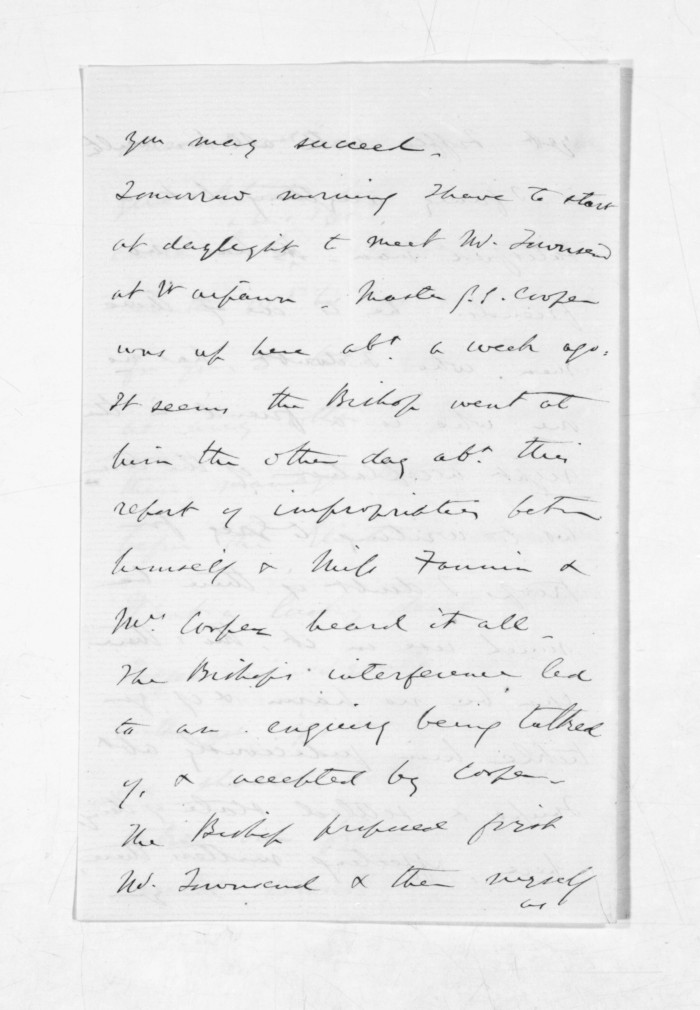 you may succeed.
Tomorrow morning I have to start
at daylight to meet Mr. Townsend
at Waipawa. Master J.G. Cooper
was up here abt. a week ago.
It seems the Bishop went at
him the other day abt. this
report of improprieties betn
himself & Miss Fannin &
Mrs Cooper heard it all
The Bishops interference led
to an enquiry being talked
of, & accepted by Cooper.
The Bishop proposed first
Mr. Townsend & then myself
as